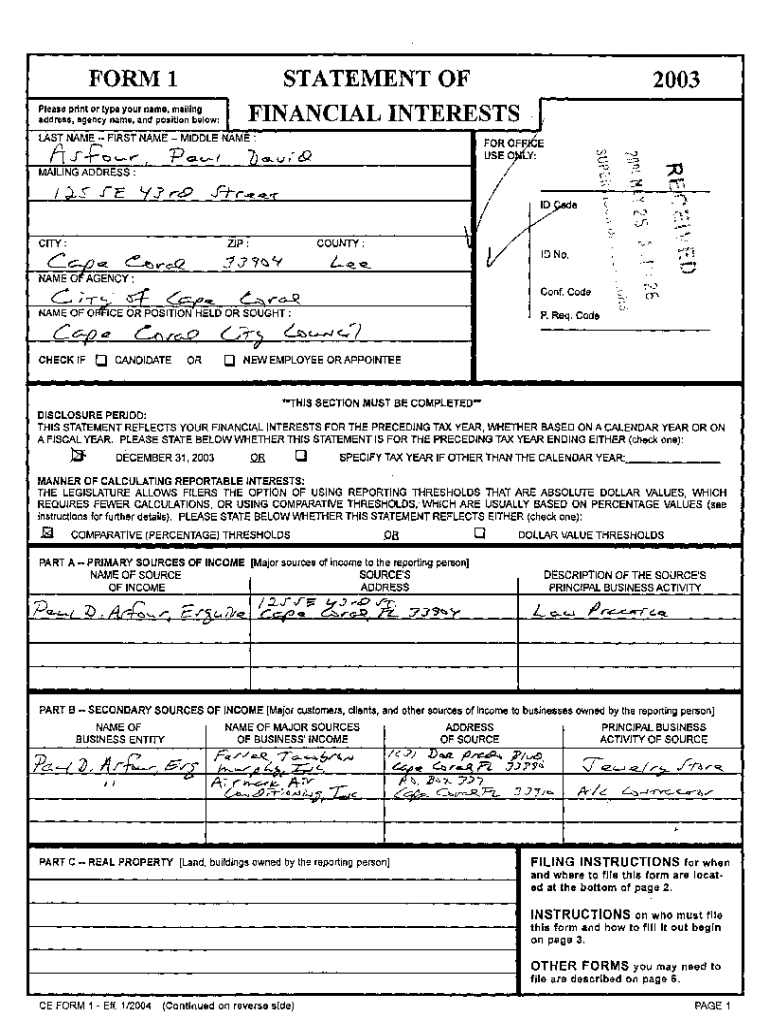 FORM 1
STATEMENT OF
FINANCIAL INTERESTS
2003
Please print or type your name, mailing
address, agency name, and position below:
LAST NAME -- FIRST NAME -- MIDDLE NAME :
Asfour, Paul David
MAILING ADDRESS :
125 SE 43rd Street
CITY : ZIP : COUNTY :
Cape Coral 33904 Lee
NAME OF AGENCY :
City of Cape Coral
NAME OF OFFICE OR POSITION HELD OR SOUGHT :
Cape Coral City Council
CHECK IF CANDIDATE OR NEW EMPLOYEE OR APPOINTEE
FOR OFFICE
USE ONLY:
ID Code
ID No.
Conf. Code
P. Req. Code
RECEIVED
**THIS SECTION MUST BE COMPLETED**
DISCLOSURE PERIOD:
THIS STATEMENT REFLECTS YOUR FINANCIAL INTERESTS FOR THE PRECEDING TAX YEAR, WHETHER BASED ON A CALENDAR YEAR OR ON
A FISCAL YEAR. PLEASE STATE BELOW WHETHER THIS STATEMENT IS FOR THE PRECEDING TAX YEAR ENDING EITHER (check one):
DECEMBER 31, 2003 OR SPECIFY TAX YEAR IF OTHER THAN THE CALENDAR YEAR:
MANNER OF CALCULATING REPORTABLE INTERESTS:
THE LEGISLATURE ALLOWS FILERS THE OPTION OF USING REPORTING THRESHOLDS THAT ARE ABSOLUTE DOLLAR VALUES, WHICH
REQUIRES FEWER CALCULATIONS, OR USING COMPARATIVE THRESHOLDS, WHICH ARE USUALLY BASED ON PERCENTAGE VALUES (see
instructions for further details). PLEASE STATE BELOW WHETHER THIS STATEMENT REFLECTS EITHER (check one):
COMPARATIVE (PERCENTAGE) THRESHOLDS OR DOLLAR VALUE THRESHOLDS
PART A -- PRIMARY SOURCES OF INCOME [Major sources of income to the reporting person]
NAME OF SOURCE SOURCE'S DESCRIPTION OF THE SOURCE'S
OF INCOME ADDRESS PRINCIPAL BUSINESS ACTIVITY
125 SE 43rd St.
Paul D. Asfour, Esquire Cape Coral, FL 33904 Law Practice
PART B -- SECONDARY SOURCES OF INCOME [Major customers, clients, and other sources of income to businesses owned by the reporting person]
NAME OF NAME OF MAJOR SOURCES ADDRESS PRINCIPAL BUSINESS
BUSINESS ENTITY OF BUSINESS' INCOME OF SOURCE ACTIVITY OF SOURCE
Paul D. Asfour, Esq Murphy, Inc Cape Coral FL Jewelry Store
" Airmark Air P.O. Box
Conditioning, Inc Cape Coral FL 33910 A/C Contractor
PART C -- REAL PROPERTY [Land, buildings owned by the reporting person]
FILING INSTRUCTIONS for when
and where to file this form are locat-
ed at the bottom of page 2.
INSTRUCTIONS on who must file
this form and how to fill it out begin
on page 3.
OTHER FORMS you may need to
file are described on page 6.
CE FORM 1 - Eff. 1/2004 (Continued on reverse side) PAGE 1